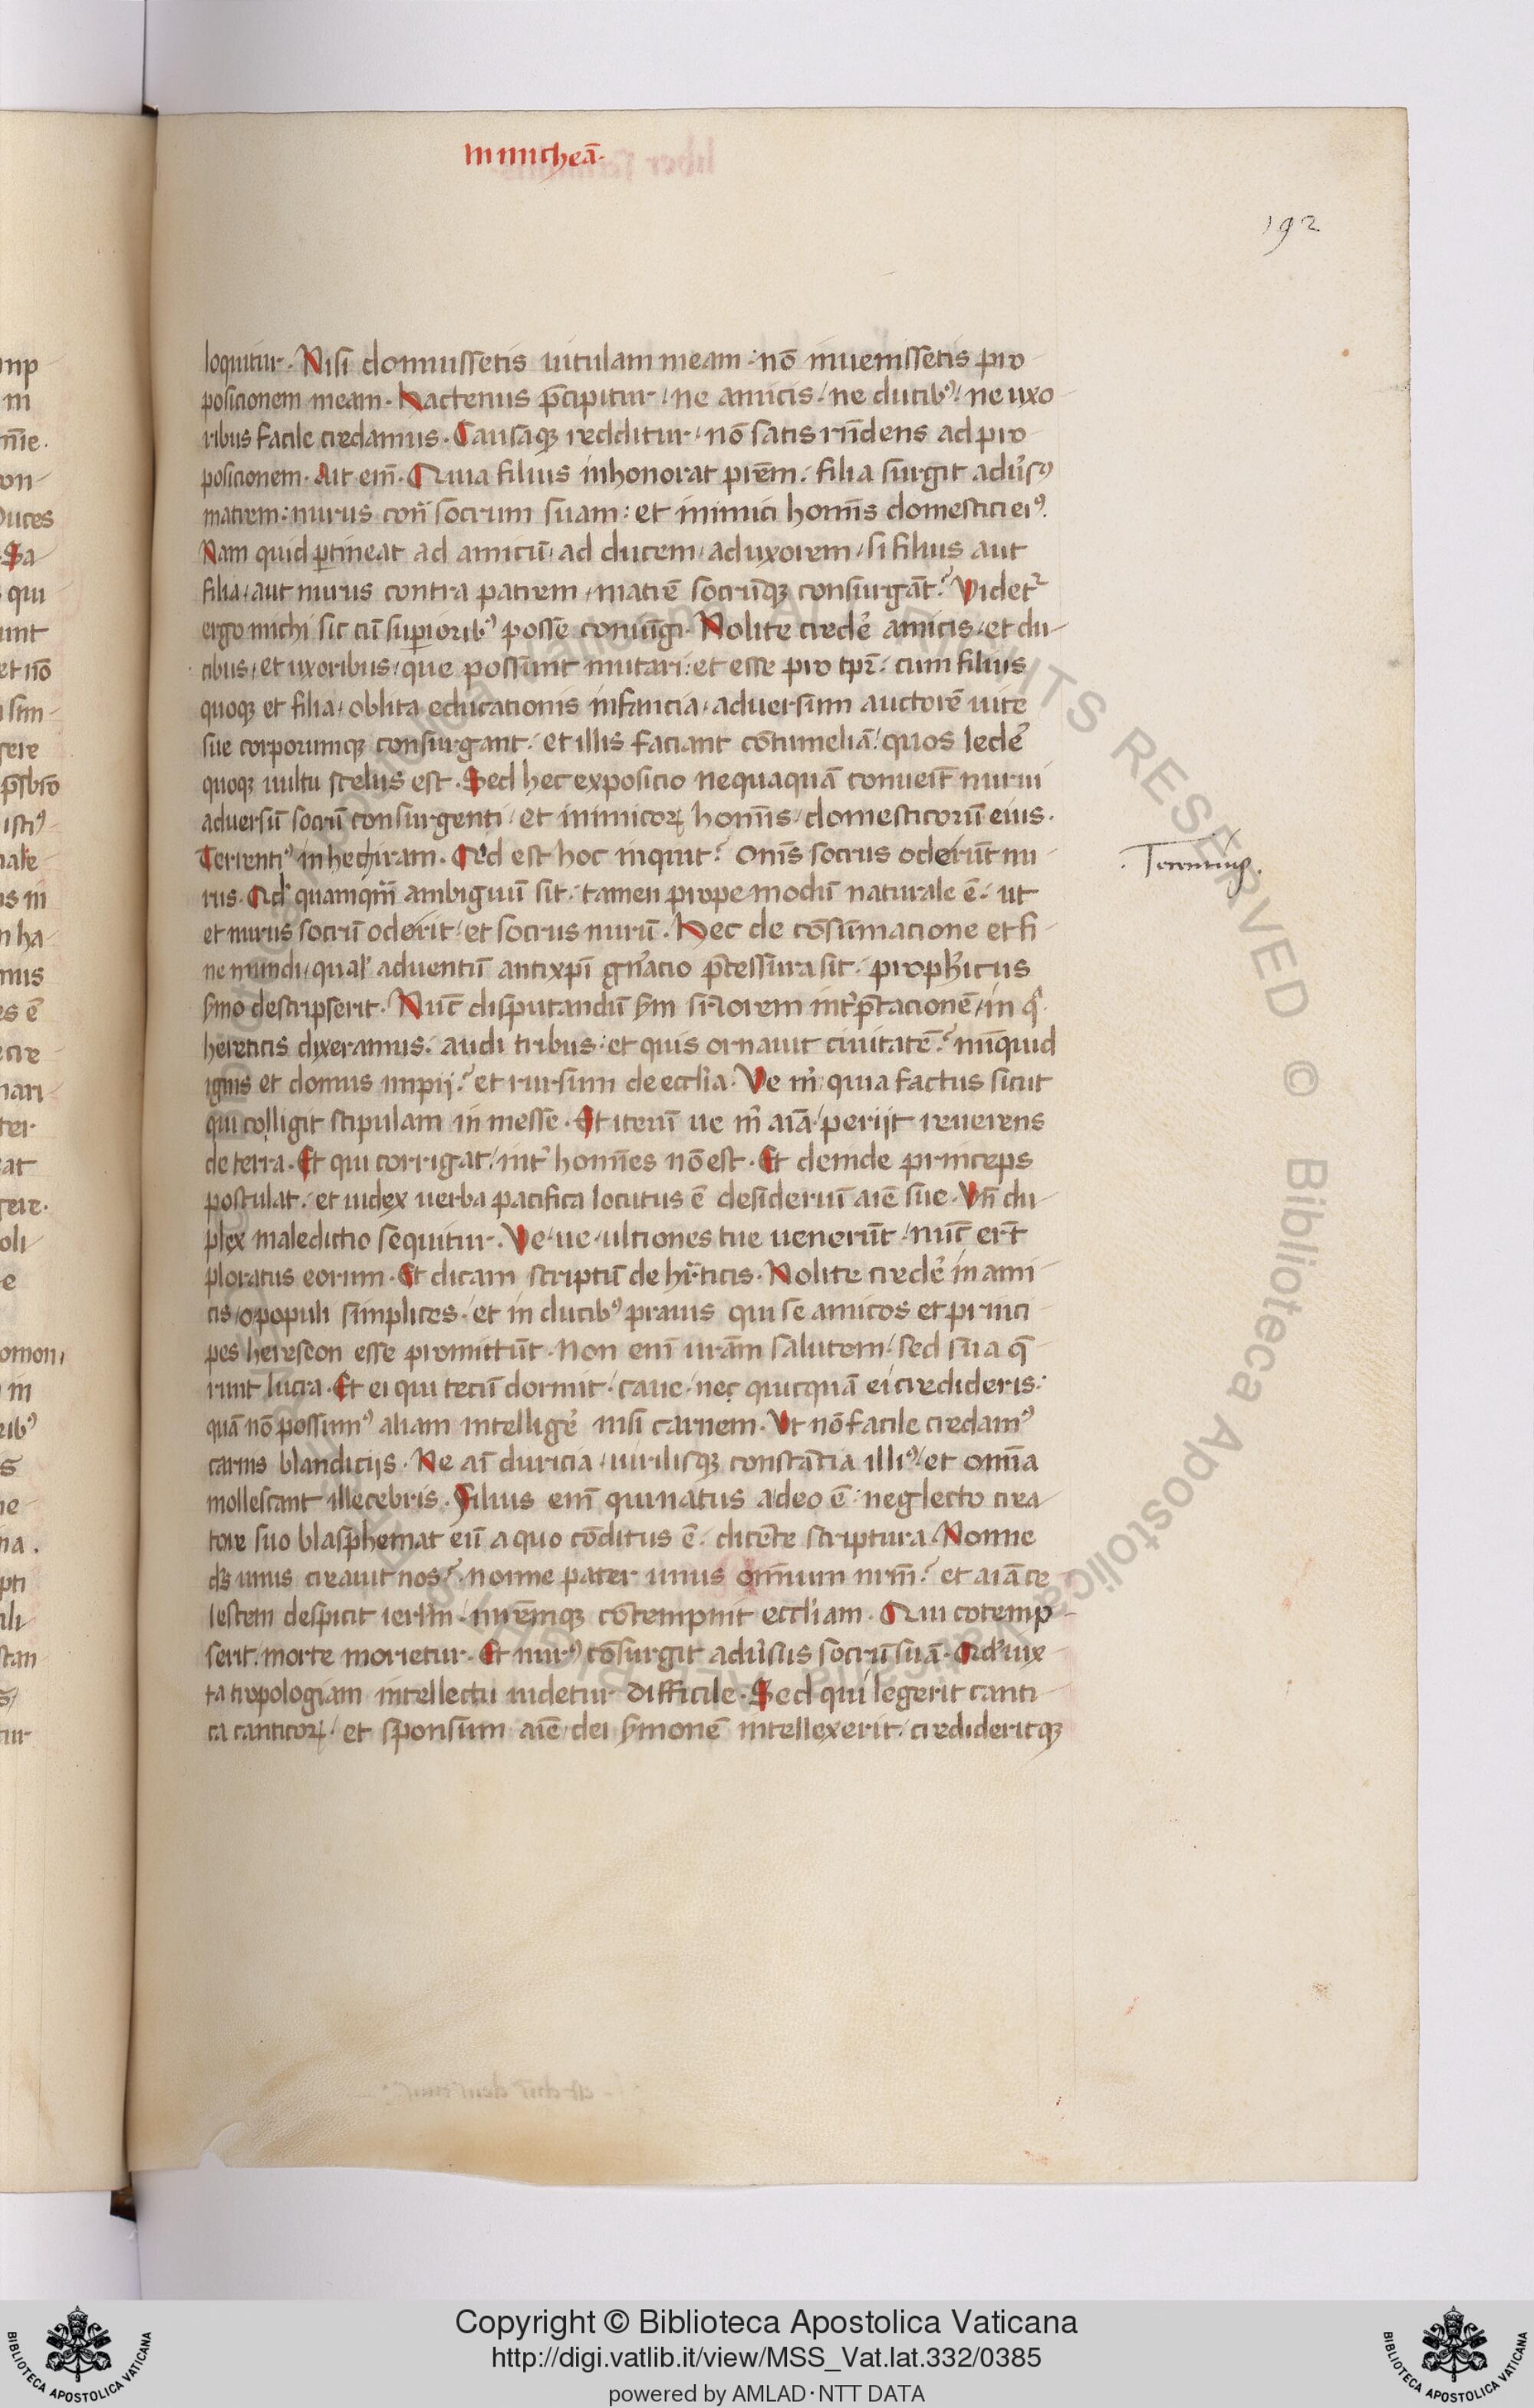 in micheā·
192
loquitur. Nisi domuissetis uitulam meam: nō inuenissetis pro
posicionem meam. Hactenus p̄cipitur/ ne amicis/ ne ducibꝰ/ ne uxo
ribus facile credamus. Causaqꝫ redditur/ nō satis rn̄dens ad pro
posicionem. Ait em̄. Quia filius inhonorat prēm. filia surgit adusꝰ
matrem: nurus con̄ socrum suam: et inimici homīs domestici eiꝰ.
Nam quid ꝑtineat ad amicū/ ad ducem/ ad uxorem/ si filius aut
filia/ aut nurus contra patrem/ matrē socrūqꝫ consurgāt? Videtᷣ
ergo michi sic cū suꝑioribꝰ posse coniūgi. Nolite crede᷑ amicis/ et du
cibus/ et uxoribus/ que possunt mutari: et esse pro tpr̄. cum filius
quoqꝫ et filia/ oblita educationis infancia/ aduersum auctorē uite
sue corporumqꝫ consurgant. et illis faciant cōtumeliā/ quos lede᷑
quoqꝫ uultu scelus est. Sed hec exposicio nequaquā conueīt nurui
aduersū socrū consurgenti/ et inimicoꝝ homīs/ domesticorū eius.
Terrentiꝰ in hechiram. Qd̓ est hoc inquit? Omīs socrus oderūt nu
·Terentius·
rus. Qd̓ quamqm̄ ambiguū sit. tamen prope modū naturale ē. ut
et nurus socrū oderit/ et socrus nurū. Hec de cōsūmacione et fi
ne mundi/ qual̓ aduentū antixp̄i gn̄acio p̄cessura sit. proph̓icus
s̓mo descripserit. Nūc disputandū s̓m sil̓iorem int̓p̄tacionē/ in q̓
hereticis dixeramus. audi tribus: et quis ornauit ciuitatē? nūquid
ignis et domus impij? et rursum de eccl̓ia. Ve m̓ quia factus sicut
qui colligit stipulam in messe. Et iterū ue m̓ aīā/ perijt reuerens
de terra. Et qui corrigat/ int̓ homīes nō est. Et deinde princeps
postulat. et iudex uerba pacifica locutus ē desideriū aīe sue. Vn̄ du
plex maledictio sequitur. Ve/ ue/ ultiones tue uenerūt/ nūc er̄t
ploratus eorum. Et dicam scriptū de hr̄ticis. Nolite crede᷑ in ami
cis/ o populi simplices. et in ducibꝰ prauis qui se amicos et princi
pes hereseon esse promittūt. Non enī ur̄am salutem/ sed sua q̄
runt lucra. Et ei qui tecū dormit. caue/ neҫ quicquā ei credideris:
quā nō possumꝰ aliam intellige᷑ nisi carnem. Ut nō facile credamꝰ
carnis blandicijs. Ne aī duricia/ uirilisqꝫ constātia illiꝰ/ et omīa
mollescant illecebris. Filius em̄ qui natus a deo ē: neglecto crea
tore suo blasphemat eū a quo cōditus ē. dicēte scriptura. Nonne
ds̄ unus creauit nos? nonne pater unus omnium nrm̄? et aīā ce
lestem despicit ierl̄m. nurēmqꝫ cōtempnit eccl̓iam. Qui cotemp
serit. morte morietur. Et nurꝰ cōsurgit adu̓sus socrū suā. Qd̓ iux
ta tropologiam intellectu uidetur difficile. Sed qui legerit canti
ca canticoꝝ. et sponsum aīe/ dei s̓monē intellexerit/ credideritqꝫ
Copyright © Biblioteca Apostolica Vaticana
http://digi.vatlib.it/view/MSS_Vat.lat.332/0385
powered by AMLAD·NTT DATA